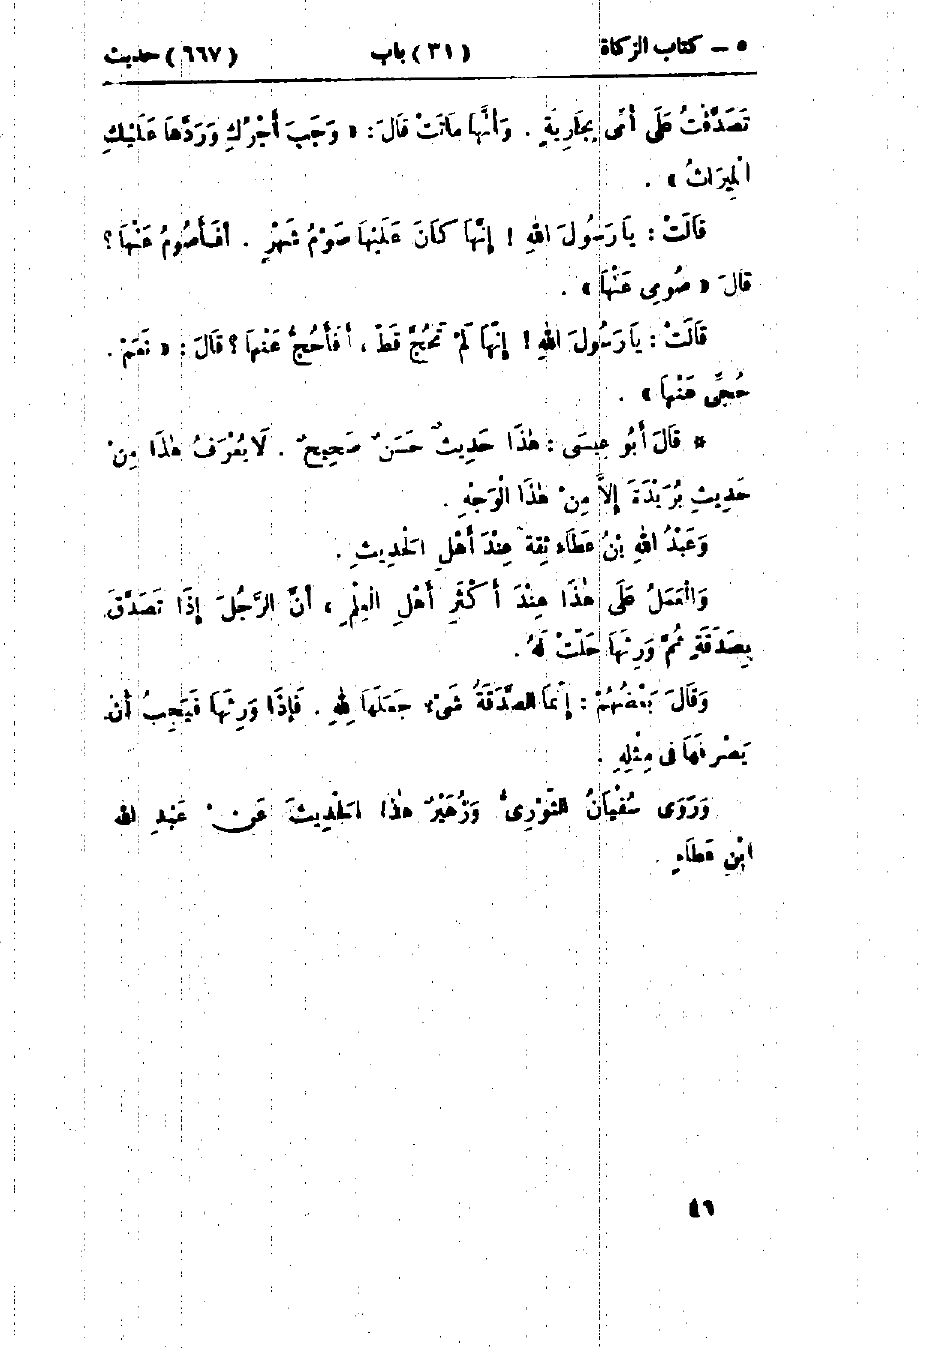 ٥ – كتاب الزكاة (٣١) باب (٦٦٧) حديث
تَصَدَّقْتُ عَلَى أُمِّى بِجَارِيَةٍ . وَأَنَّهَا مَاتَتْ قَالَ : « وَجَبَ أَجْرُكِ وَرَدَّهَا عَلَيْكِ
الْمِيرَاثُ » .
قَالَتْ : يَا رَسُولَ اللهِ ! إِنَّهَا كَانَ عَلَيْهَا صَوْمُ شَهْرٍ . أَفَأَصُومُ عَنْهَا ؟
قَالَ « صُومِى عَنْهَا » .
قَالَتْ : يَا رَسُولَ اللهِ ! إِنَّهَا لَمْ تَحُجَّ قَطُّ ، أَفَأَحُجُّ عَنْهَا ؟ قَالَ : « نَعَمْ .
حُجِّى عَنْهَا » .
* قَالَ أَبُو عِيسَى : هٰذَا حَدِيثٌ حَسَنٌ صَحِيحٌ . لَا يُعْرَفُ هٰذَا مِنْ
حَدِيثِ بُرَيْدَةَ إِلَّا مِنْ هٰذَا الْوَجْهِ .
وَعَبْدُ اللهِ بْنُ عَطَاءٍ ثِقَةٌ عِنْدَ أَهْلِ الْحَدِيثِ .
وَالْعَمَلُ عَلَى هٰذَا عِنْدَ أَكْثَرِ أَهْلِ الْعِلْمِ ، أَنَّ الرَّجُلَ إِذَا تَصَدَّقَ
بِصَدَقَةٍ ثُمَّ وَرِثَهَا حَلَّتْ لَهُ .
وَقَالَ بَعْضُهُمْ : إِنَّمَا الصَّدَقَةُ شَىْءٌ جَعَلَهَا لِلهِ . فَإِذَا وَرِثَهَا فَيَجِبُ أَنْ
يَصْرِفَهَا فِى مِثْلِهِ .
وَرَوَى سُفْيَانُ الثَّوْرِىُّ وَزُهَيْرٌ هٰذَا الْحَدِيثَ عَنْ عَبْدِ اللهِ
ابْنِ عَطَاءٍ .
٤٦